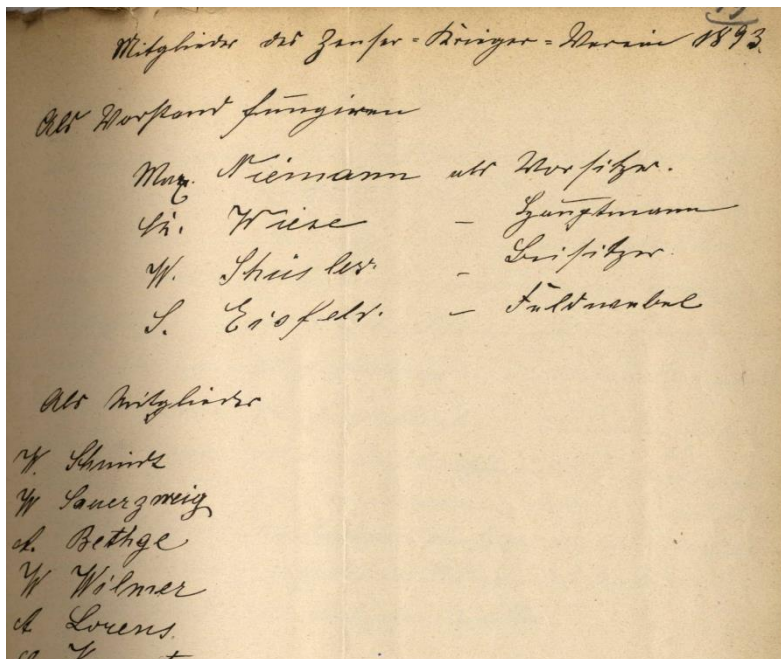 Mitglieder des Zenser-Krieger-Verein 1893.
Als Vorstand fungiren
Max. Niemann als Vorsitzer.
Wiese – Hauptmann
W. – Beisitzer.
S. Eisfeld. – Feldwebel
Als Mitglieder
W. Schmidt
W Sauerzweig
A. Bethge
W Wilmer
A Lorens.